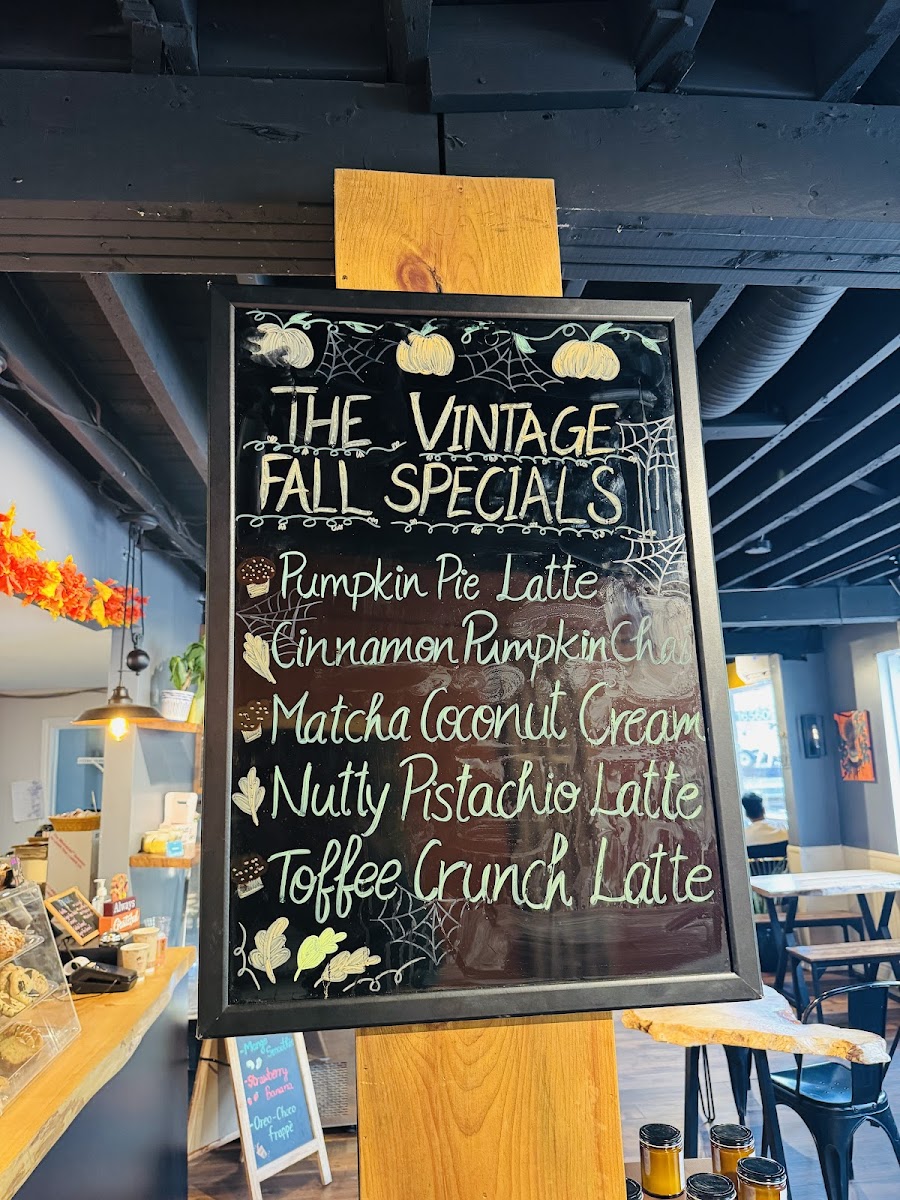 THE VINTAGE
FALL SPECIALS
Pumpkin Pie Latte
Cinnamon Pumpkin Chai
Matcha Coconut Cream
Nutty Pistachio Latte
Toffee Crunch Latte
Always
-Mango
Smoothie
-Strawberry
Banana
-Oreo-Choco
frappè